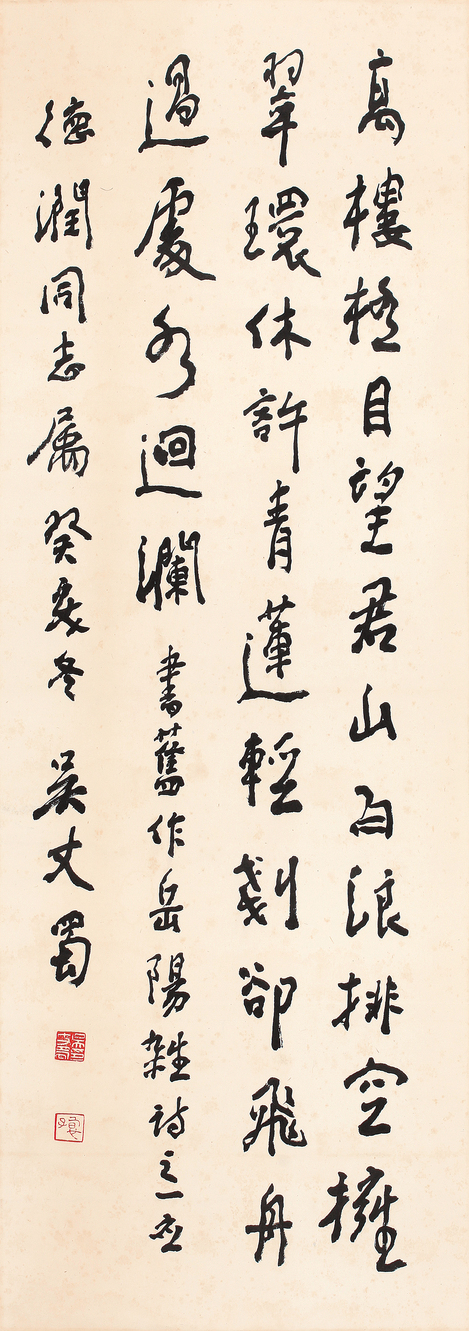 高楼極目望君山白浪排空擁
翠環休許青蓮輕剗卻飛舟
過處水迴瀾 書舊作岳陽雜詩之一應
德潤同志属 癸亥冬 吴丈蜀